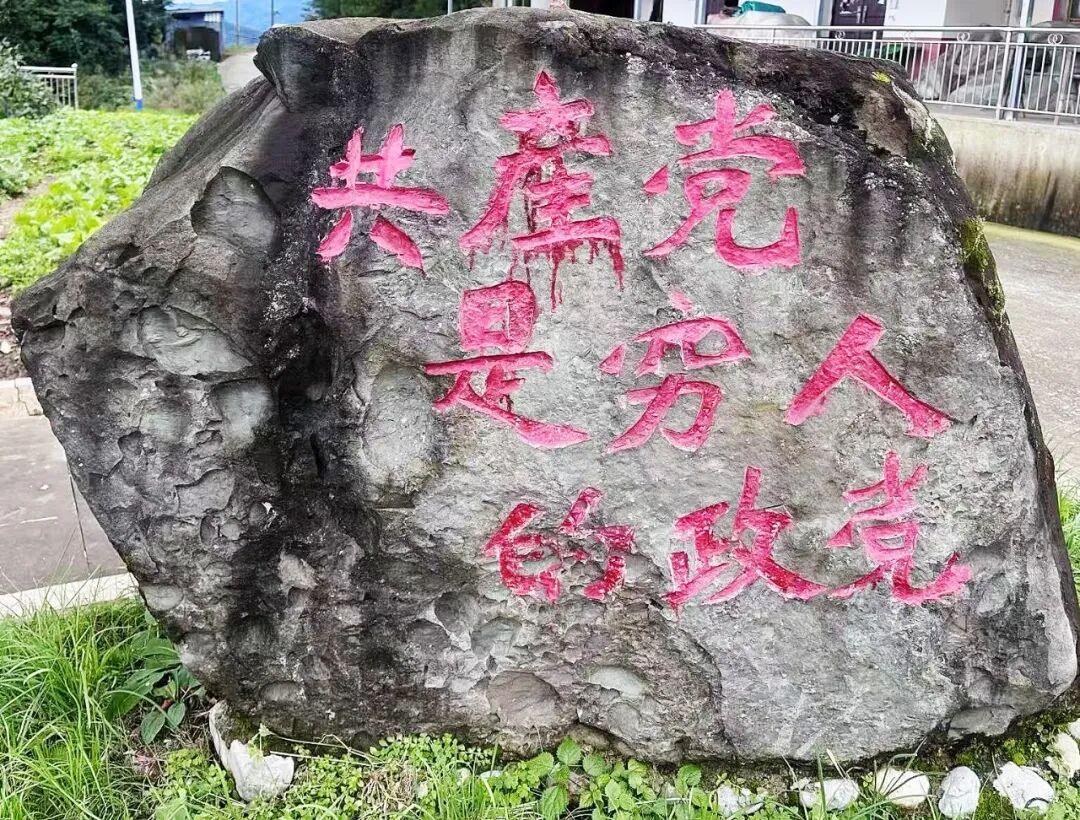 共産党
是穷人
的政党